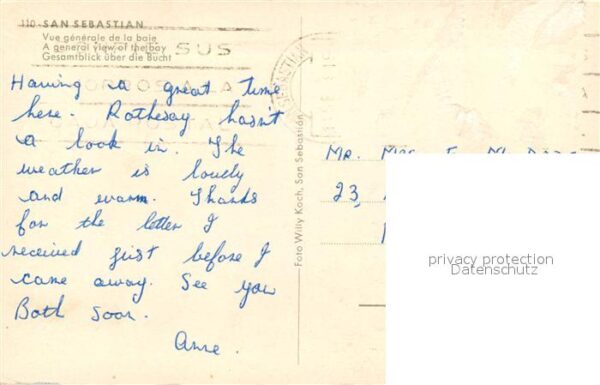 110 - SAN SEBASTIAN
Vue générale de la baie
A general view of the bay
Gesamtblick über die Bucht
SUS
Having a great time
here. Rothesay hasn't
a look in. The
weather is lovely
and warm. Thanks
for the letter I
received just before I
came away. See you
Both soon.
Anne.
Foto Willy Koch, San Sebastián
Mr. Mrs
23,
privacy protection
Datenschutz